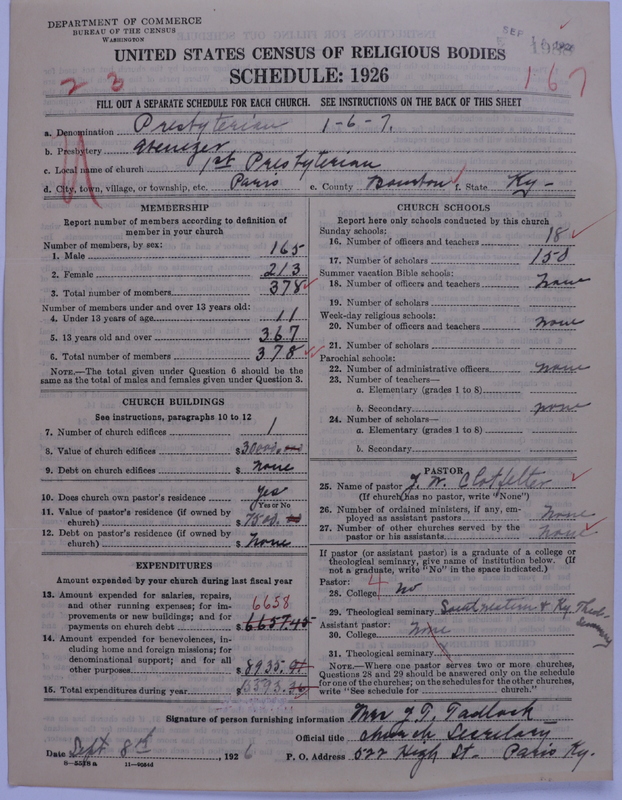 DEPARTMENT OF COMMERCE
BUREAU OF THE CENSUS
WASHINGTON
SEP
UNITED STATES CENSUS OF RELIGIOUS BODIES
SCHEDULE: 1926
2 3
167
FILL OUT A SEPARATE SCHEDULE FOR EACH CHURCH. SEE INSTRUCTIONS ON THE BACK OF THIS SHEET
a. Denomination Presbyterian 1-6-7.
b. Presbytery Ebenezer
c. Local name of church 1st Presbyterian
d. City, town, village, or township, etc. Paris e. County Bourbon f. State Ky-
MEMBERSHIP
Report number of members according to definition of
member in your church
Number of members, by sex:
1. Male 165
2. Female 213
3. Total number of members 378
Number of members under and over 13 years old:
4. Under 13 years of age 11
5. 13 years old and over 367
6. Total number of members 378
NOTE.—The total given under Question 6 should be
the same as the total of males and females given under Question 3.
CHURCH BUILDINGS
See instructions, paragraphs 10 to 12
7. Number of church edifices 1
8. Value of church edifices $30000.00
9. Debt on church edifices $ None
10. Does church own pastor's residence Yes
(Yes or No)
11. Value of pastor's residence (if owned by
church) $7500.00
12. Debt on pastor's residence (if owned by
church) $ None
EXPENDITURES
Amount expended by your church during last fiscal year
13. Amount expended for salaries, repairs,
and other running expenses; for im-
provements or new buildings; and for
payments on church debt 6658
$6657.45
14. Amount expended for benevolences, in-
cluding home and foreign missions; for
denominational support; and for all
other purposes $8935.91
15. Total expenditures during year $
CHURCH SCHOOLS
Report here only schools conducted by this church
Sunday schools:
16. Number of officers and teachers 18
17. Number of scholars 150
Summer vacation Bible schools:
18. Number of officers and teachers None
19. Number of scholars
Week-day religious schools:
20. Number of officers and teachers None
21. Number of scholars
Parochial schools:
22. Number of administrative officers None
23. Number of teachers—
a. Elementary (grades 1 to 8)
b. Secondary None
24. Number of scholars—
a. Elementary (grades 1 to 8)
b. Secondary
PASTOR
25. Name of pastor J. W. Clotfelter
(If church has no pastor, write "None")
26. Number of ordained ministers, if any, em-
ployed as assistant pastors None
27. Number of other churches served by the
pastor or his assistants None
If pastor (or assistant pastor) is a graduate of a college or
theological seminary, give name of institution below. (If
not a graduate, write "No" in the space indicated.)
Pastor:
4
28. College No
29. Theological seminary Southwestern & Ky Theol- Seminary
Assistant pastor:
30. College None
31. Theological seminary
NOTE.—Where one pastor serves two or more churches,
Questions 28 and 29 should be answered only on the schedule
for one of the churches; on the schedules for the other churches,
write "See schedule for church."
Signature of person furnishing information Mrs J. T. Tadlock
Official title Church Secretary
Date Sept 8th, 1926 P. O. Address 522 High St- Paris Ky.
8-5518a 11-9564d